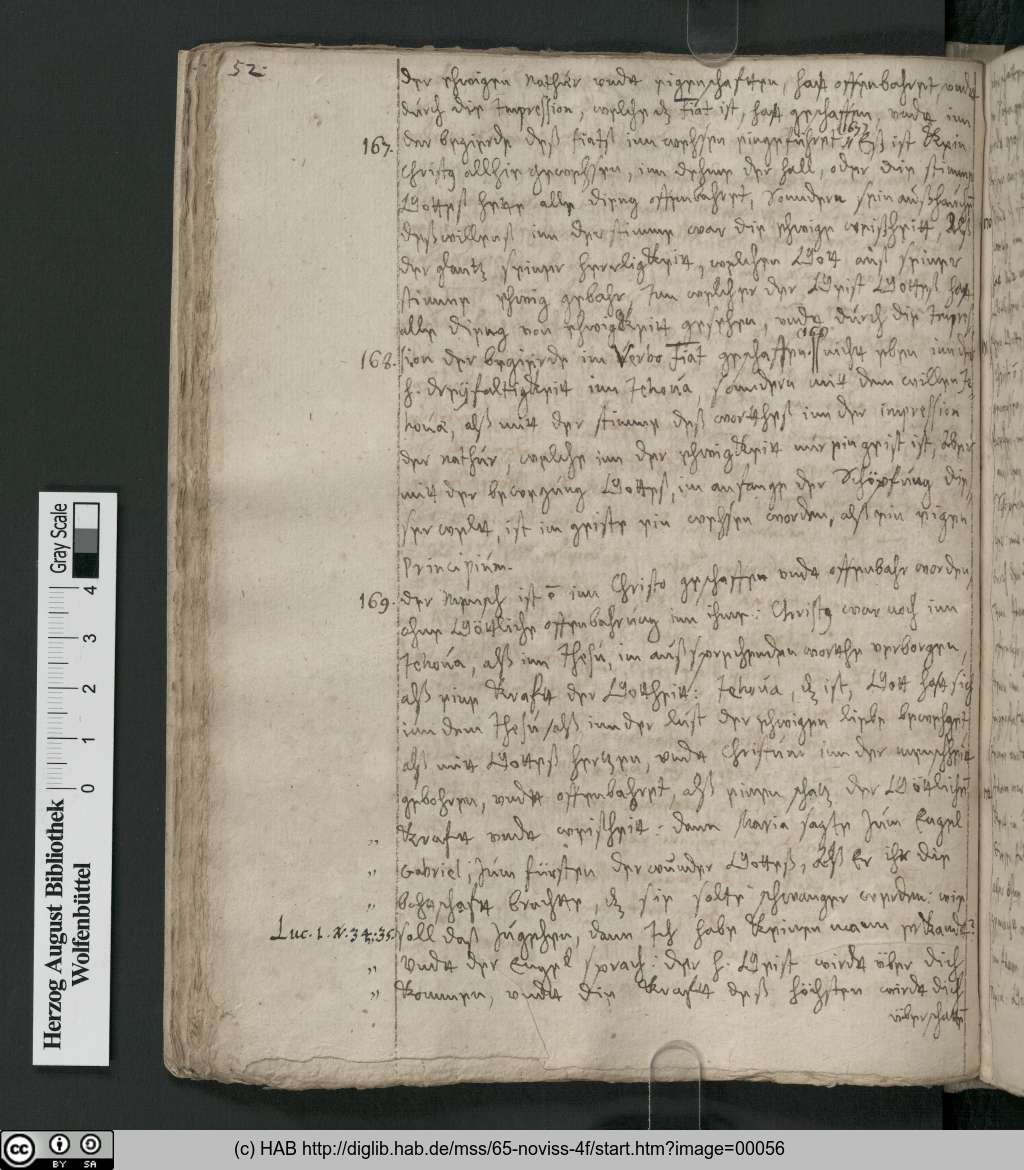 52.
der ehwigen nathúr undt eigenschafften, hatt offenbahret, undt
dúrch die Impression, welche dz Fiat ist, hatt geschaffen, undt inn
167. der begierde deß Fiatß inn wehsen eingeführet. Eß ist kein
Christg allhie gewehssen, inn dehme der hall, oder die stimme
Gotteß hette alle dieng offenbahret, Sonndern sein außhauch
deßwillenß inn der stimme war die ehwige weißheitt, Alß
der glantz seiner herrligkeitt, welchen Gott auß seiner
stimme ehwig gebahr, Inn welcher der Geist Gotteß hatt
alle dieng von ehwigkeitt gesehen, undt dúrch die Impreß-
168. sion der begierde im Verbo Fiat geschaffen. nicht eben inn der
h: dreÿfaltigkeitt inn Jehova, sonndern mitt dem willen Je-
hová, alß mitt der stimme deß wortheß inn der impression
der nathúr, welche inn der ehwigkeitt núr ein geist ist, Aber
mitt der bewegúng Gotteß, im anfange der Schöpfúng die-
ser weldt, ist im geiste ein wehsen worden, alß ein eigen
Principiúm.
169. der Mennsch ist ō inn Christo geschaffen undt offenbahr worden,
ohne Göttliche offenbahrúng inn ihme: Christg war noch inn
Jehova, alß inn Jhesú, im außsprechenden worthe verborgen,
alß eine Krafft der Gottheitt: Jehova, dz ist, Gott hatt sich
inn dem Jhesú /alß inn der lust der ehwigen liebe beweget
alß mitt Gotteß hertzen, undt Christúm inn der mennschheitt
gebohren, undt offenbahret, alß einen schatz der Göttlichen
„ Krafft undt weißheitt: dann Maria sagte zúm Engel
„ Gabriel; zúm fürsten der wunder Gotteß, Alß Er ihr die
„ bottschafft brachte, dz sie solte schwanger werden: wie
Luc. 1. v. 34. 35. soll daß zúgehen, dann Ich habe keinen mann erkandt?
„ Undt der Engel sprach: der h. Geist wirdt über dich
„ kommen, undt die Krafft deß höchsten wirdt dich
überschatt
Gray Scale
0 1 2 3 4
Herzog August Bibliothek
Wolfenbüttel
cc BY SA
(c) HAB http://diglib.hab.de/mss/65-noviss-4f/start.htm?image=00056